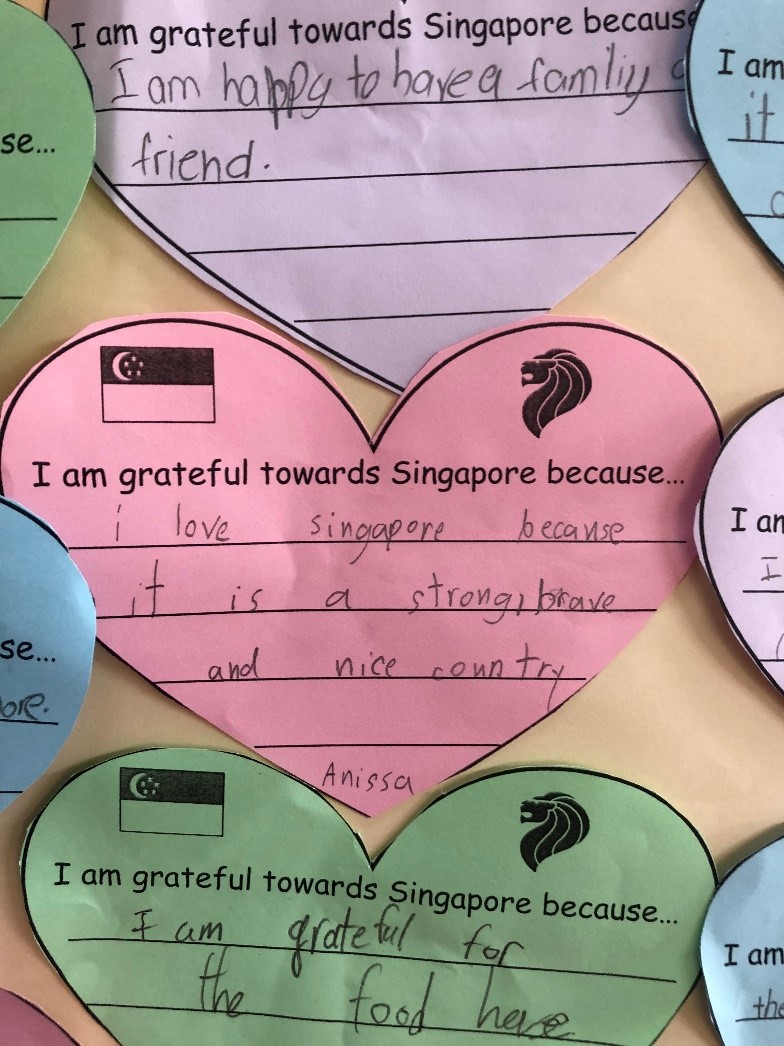 I am grateful towards Singapore because
I am happy to have a famliy
friend.
I am
it
se...
I am grateful towards Singapore because...
i love singapore because
it is a strong, brave
and nice country
Anissa
I am
I
se...
ore.
I am grateful towards Singapore because...
I am grateful for
the food here
I am
the